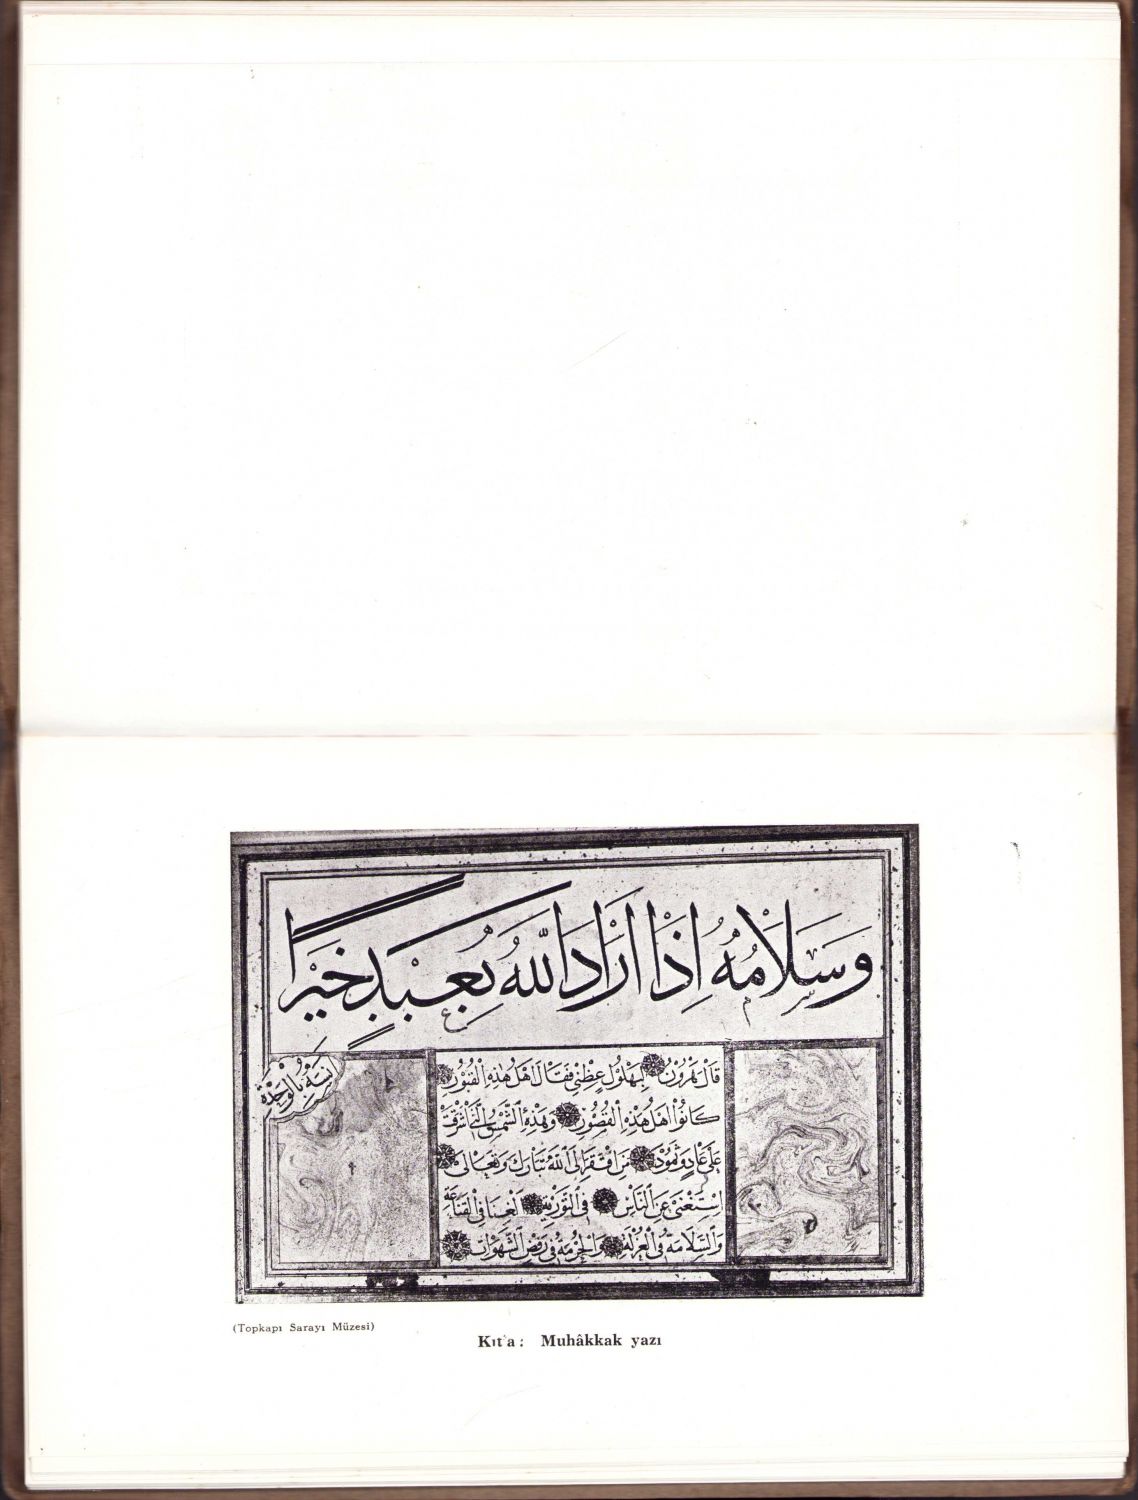 وَسَلَامُهُ اِذَا اَرَادَ اللّٰهُ بِعَبْدٍ خَيْرًا
قَالَ هٰرُونُ لِبُهْلُولَ عِظْنِي فَقَالَ اَهْلُ هٰذِهِ الْقُبُورِ
كَانُوا اَهْلَ هٰذِهِ الْقُصُورِ وَهٰذِهِ الشَّمْسُ الَّتِي اَشْرَقَتْ
عَلَى عَادٍ وَثَمُودَ مَنِ افْتَقَرَ اِلَى اللّٰهِ تَبَارَكَ وَتَعَالَى
اِسْتَغْنَى عَنِ النَّاسِ فِي التَّوْرٰيةِ الْغِنَا فِي الْقَنَاعَةِ
وَالسَّلَامَةُ فِي الْعُزْلَةِ وَالْحُرْمَةُ فِي رَفْضِ الشَّهَوَاتِ
(Topkapı Sarayı Müzesi)
Kıt'a : Muhâkkak yazı